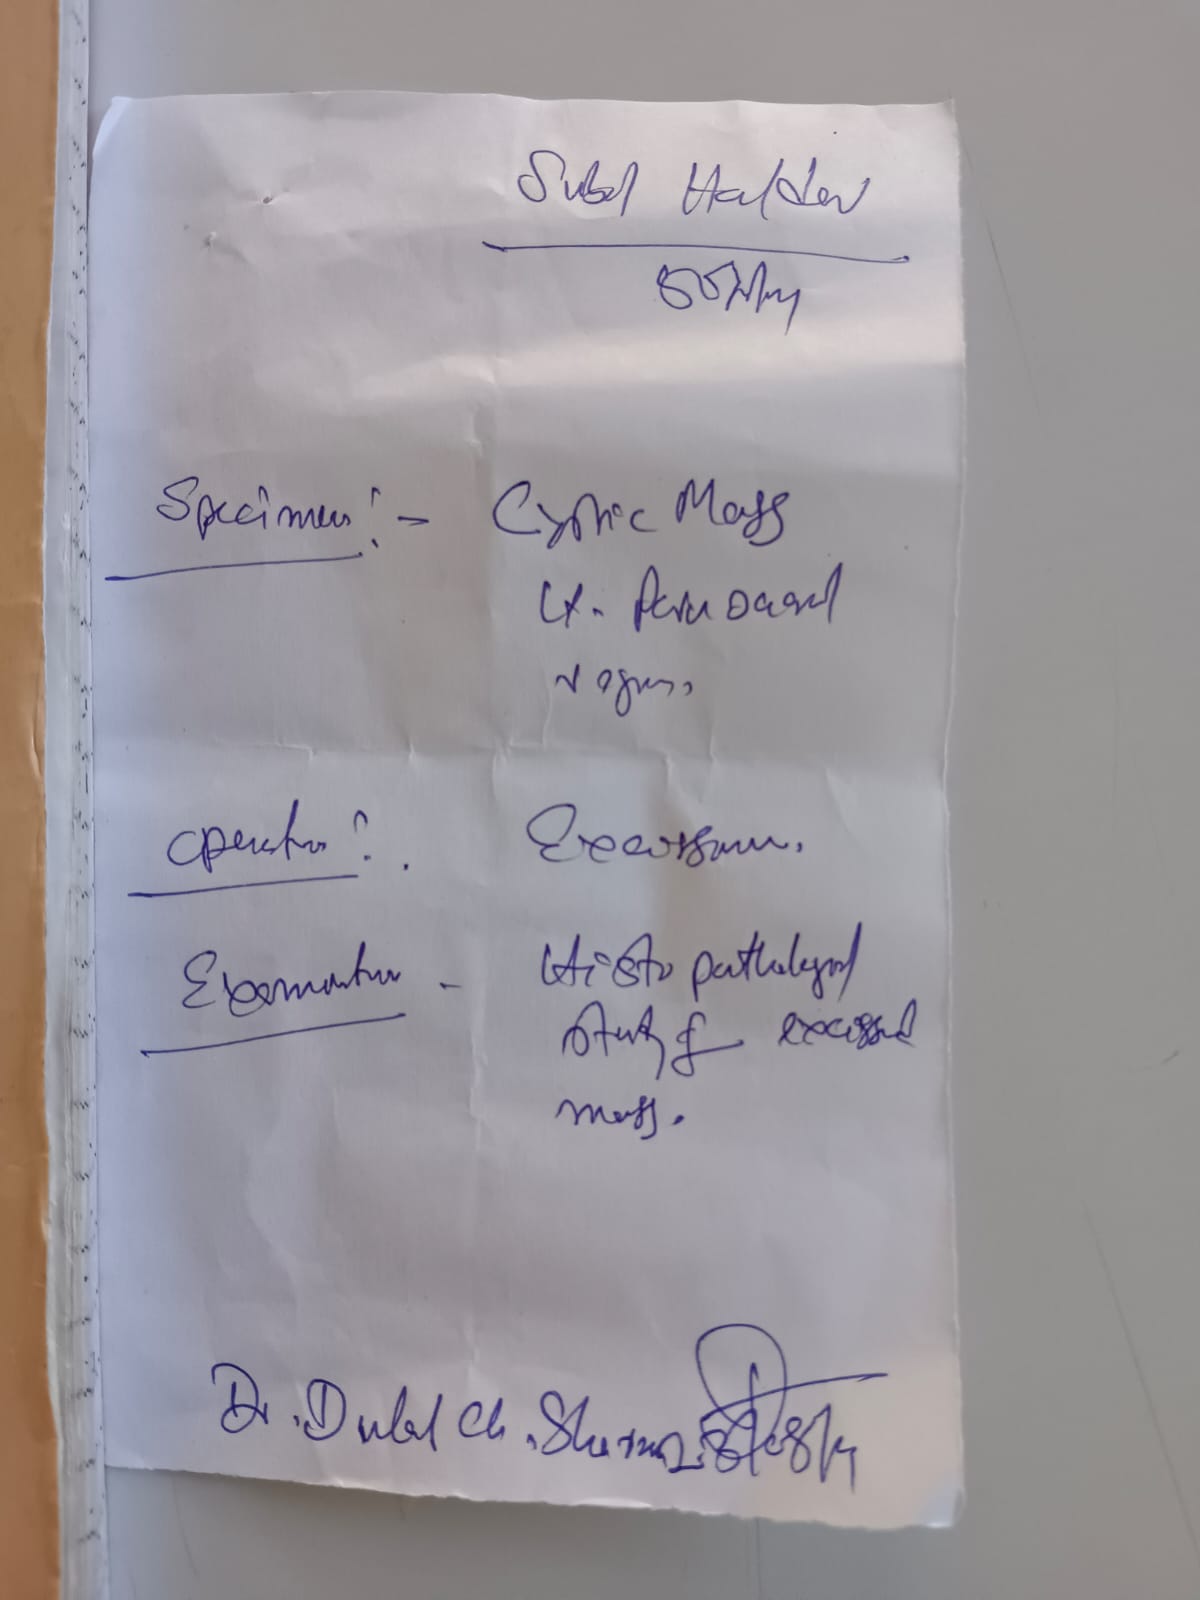 Subal Halder
Specimen :- Cystic Mass
Lt.
region.
Operation : . Excission.
Examination - Histopathological
study of excissed
mass.
Dr. Dulal Ch. Sharma